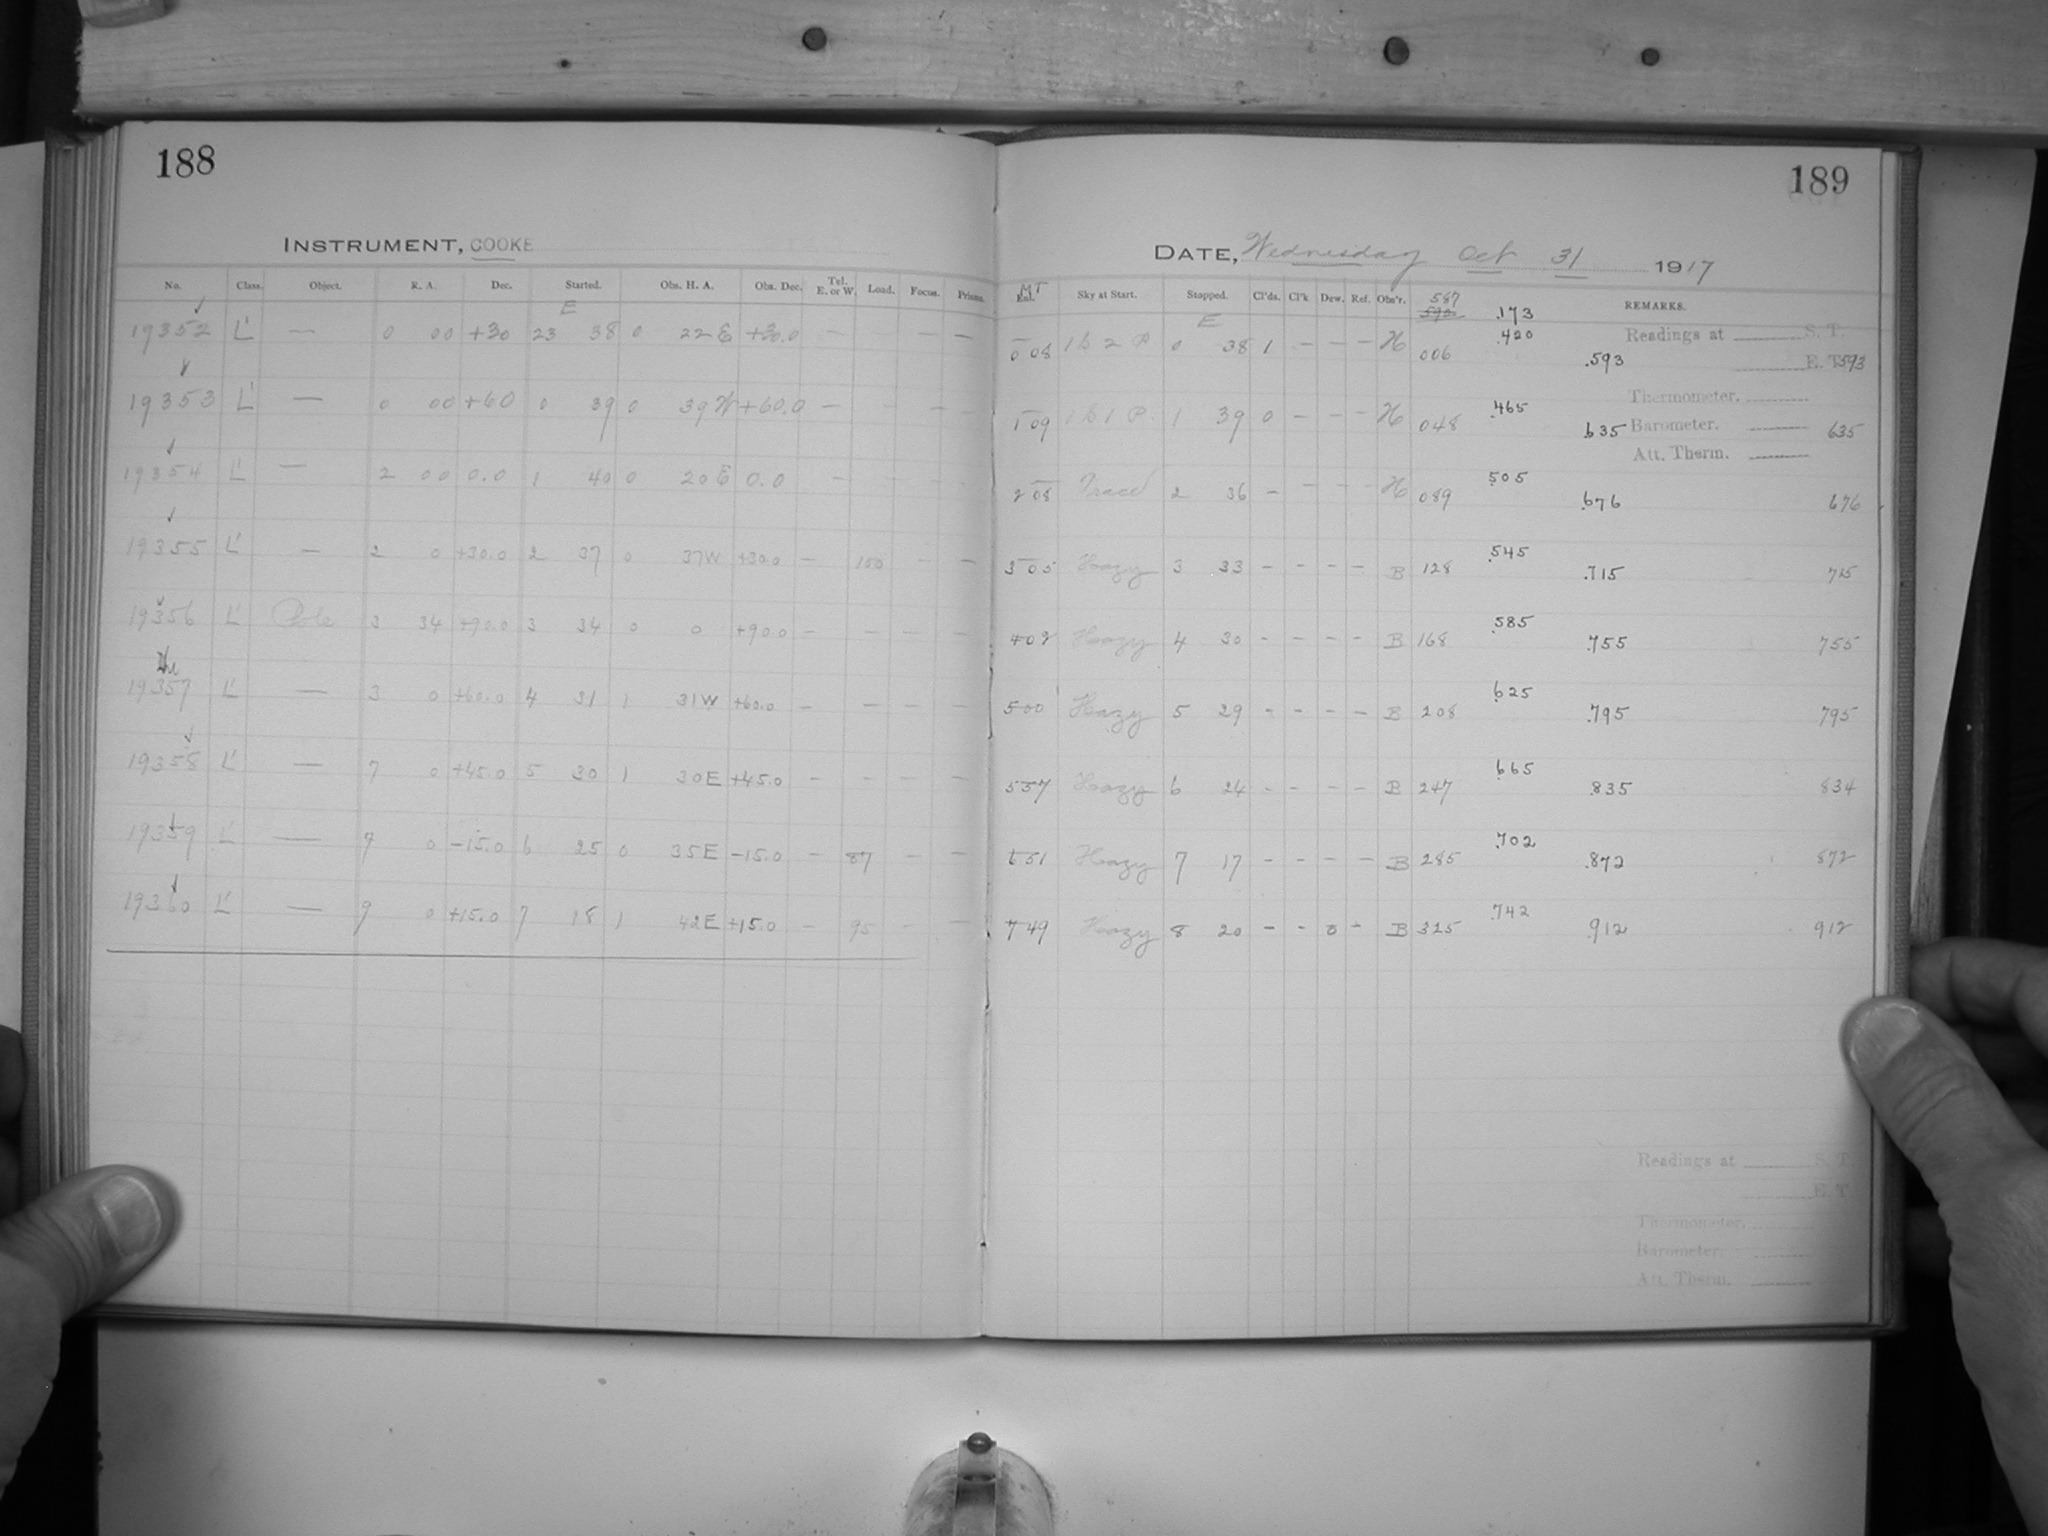 188
INSTRUMENT, COOKE
No. Class. Object. R. A. Dec. Started. Obs. H. A. Obs. Dec. Tel. E. or W. Load. Focus. Prisms.
E
19352 L' — 0 00 +30 23 38 0 22 E +30.0 — — —
19353 L' — 0 00 +60 0 39 0 39 W +60.0 — —
19354 L' — 2 00 0.0 1 40 0 20 E 0.0 —
19355 L' — 2 0 +30.0 2 37 0 37 W +30.0 — 100 — —
19356 L' Pole 3 34 +90.0 3 34 0 0 +90.0 — — — —
19357 L' — 3 0 +60.0 4 31 1 31 W +60.0 — — — —
19358 L' — 7 0 +45.0 5 30 1 30 E +45.0 — — — —
19359 L' — 7 0 -15.0 6 25 0 35 E -15.0 — 87 — —
19360 L' — 9 0 +15.0 7 18 1 42 E +15.0 — 95 — —
189
DATE, Wednesday Oct 31 1917
MT 587
Sky at Start. Stopped. Cl'ds. Cl'k Dew. Ref. Obs'r. 592 .173 REMARKS.
E
0 08 1 b 2 P 0 38 1 — — — H 006 .420 .593 Readings at S. T.
E. T. 593
1 09 1 b 1 P. 1 39 0 — — — H 048 .465 .635 Thermometer.
Barometer. 635
Att. Therm.
2 08 Trace 2 36 — — — — H 089 .505 .676 676
3 05 Hazy 3 33 — — — — B 128 .545 .715 715
4 02 Hazy 4 30 — — — — B 168 .585 .755 755
5 00 Hazy 5 29 — — — — B 208 .625 .795 795
5 57 Hazy 6 24 — — — — B 247 .665 .835 834
6 51 Hazy 7 17 — — — — B 285 .702 .872 872
7 49 Hazy 8 20 — — 0 — B 325 .742 .912 912
Readings at S. T.
E. T.
Thermometer.
Barometer.
Att. Therm.